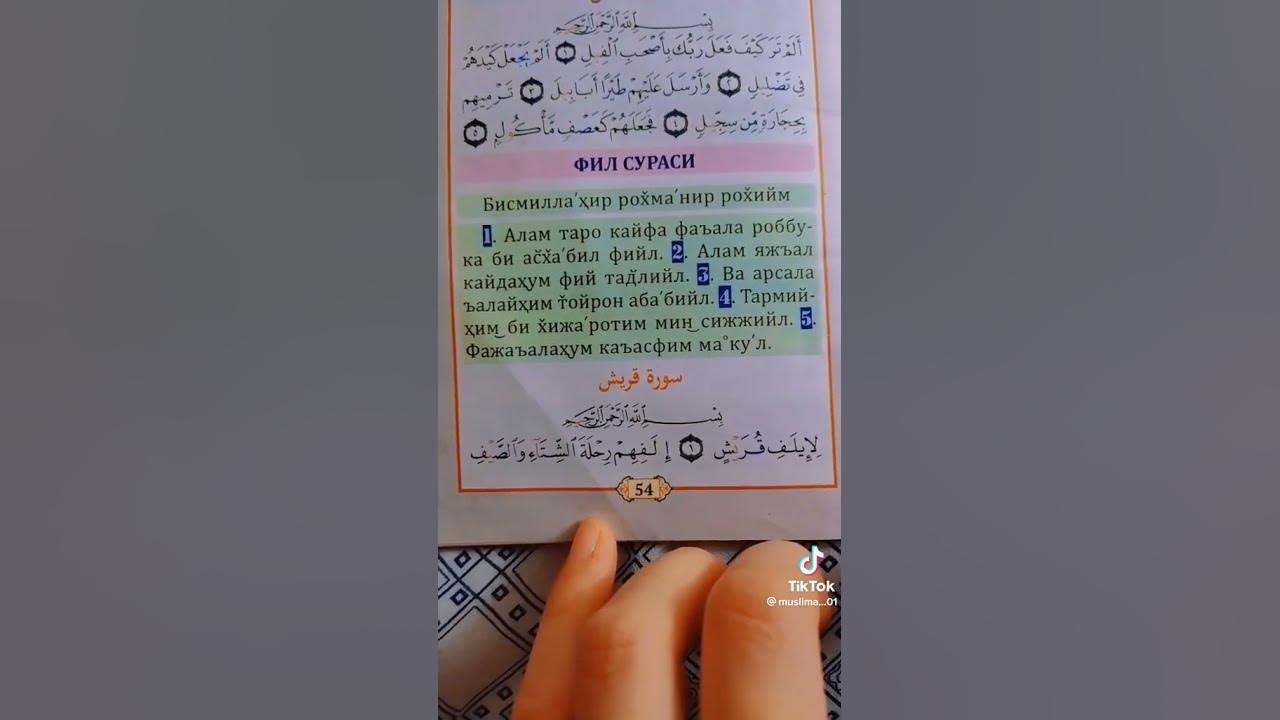 بِسْمِ ٱللَّهِ ٱلرَّحْمَٰنِ ٱلرَّحِيمِ
أَلَمْ تَرَ كَيْفَ فَعَلَ رَبُّكَ بِأَصْحَٰبِ ٱلْفِيلِ ١ أَلَمْ يَجْعَلْ كَيْدَهُمْ
فِي تَضْلِيلٍ ٢ وَأَرْسَلَ عَلَيْهِمْ طَيْرًا أَبَابِيلَ ٣ تَرْمِيهِم
بِحِجَارَةٍ مِّن سِجِّيلٍ ٤ فَجَعَلَهُمْ كَعَصْفٍ مَّأْكُولٍ ٥
ФИЛ СУРАСИ
Бисмилла′ҳир рох̌ма′нир рох̌ийм
1. Алам таро кайфа фаъала роббу-
ка би ас̌х̌а′бил фийл. 2. Алам яжъал
кайдаҳум фий тад̌лийл. 3. Ва арсала
ъалайҳим т̌ойрон аба′бийл. 4. Тармий-
ҳим‿би х̌ижа′ротим мин‿сижжийл. 5.
Фажаъалаҳум каъасфим ма°ку′л.
سورة قريش
بِسْمِ ٱللَّهِ ٱلرَّحْمَٰنِ ٱلرَّحِيمِ
لِإِيلَٰفِ قُرَيْشٍ ١ إِۦلَٰفِهِمْ رِحْلَةَ ٱلشِّتَآءِ وَٱلصَّيْفِ
54
TikTok
@muslima...01